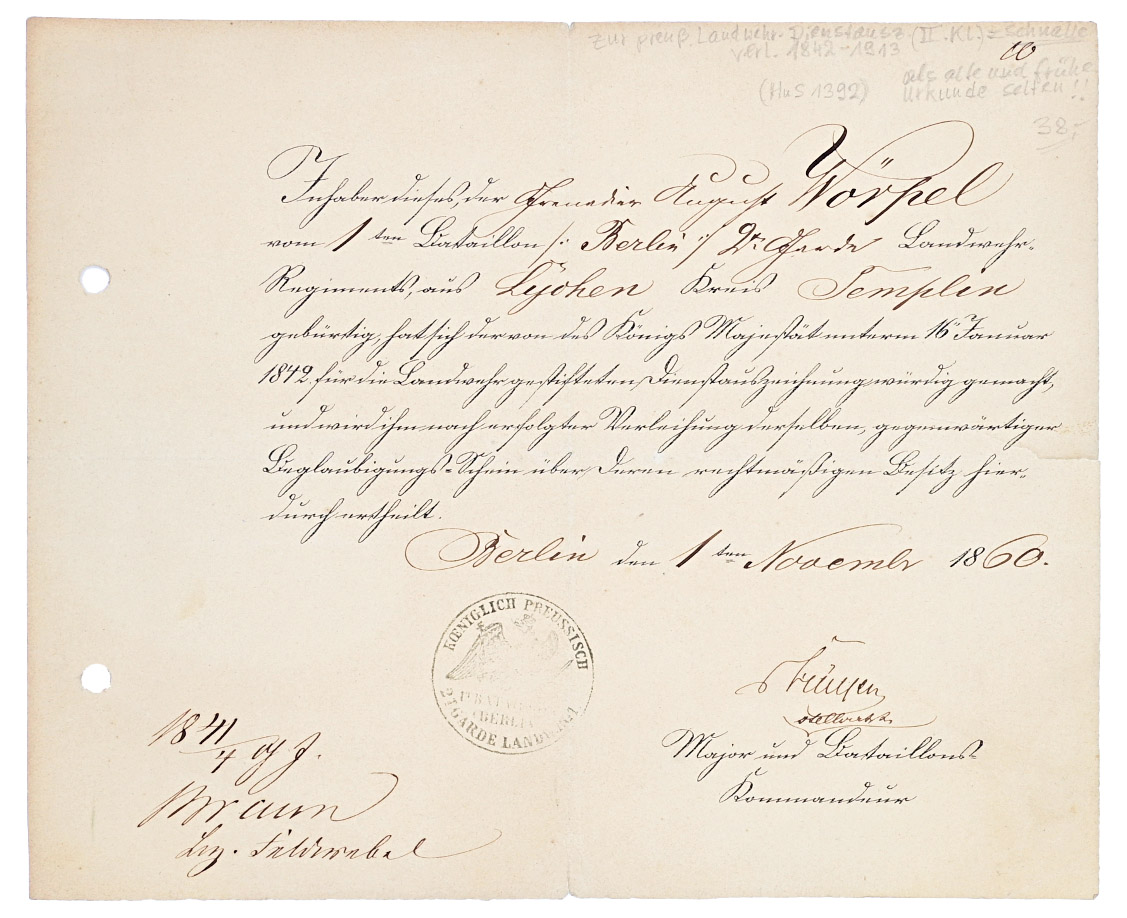 zur preuß. Landwehr-Dienstausz (II. Kl.) = schnalle
verl. 1842-1913
als alte und frühe
(HuS 1392) Urkunde selten!!
38,-
Inhaber dieses, der Grenadier August Wörpel
vom 1ten Bataillon /: Berlin :/ 2n Garde Landwehr-
Regiments, aus Lychen Kreis Templin
gebürtig, hat sich der von des Königs Majestät unterm 16 Januar
1842 für die Landwehr gestifteten Dienstauszeichnung würdig gemacht,
und wird ihm nach erfolgter Verleihung derselben, gegenwärtiger
Beglaubigungs-Schein über deren rechtmäßigen Besitz hier-
durch ertheilt.
Berlin den 1ten November 1860.
KŒNIGLICH PREUSSISCH
BERLIN
GARDE LANDW.
Major und Bataillons-
Kommandeur
1841
4
Braun
Bez. Feldwebel